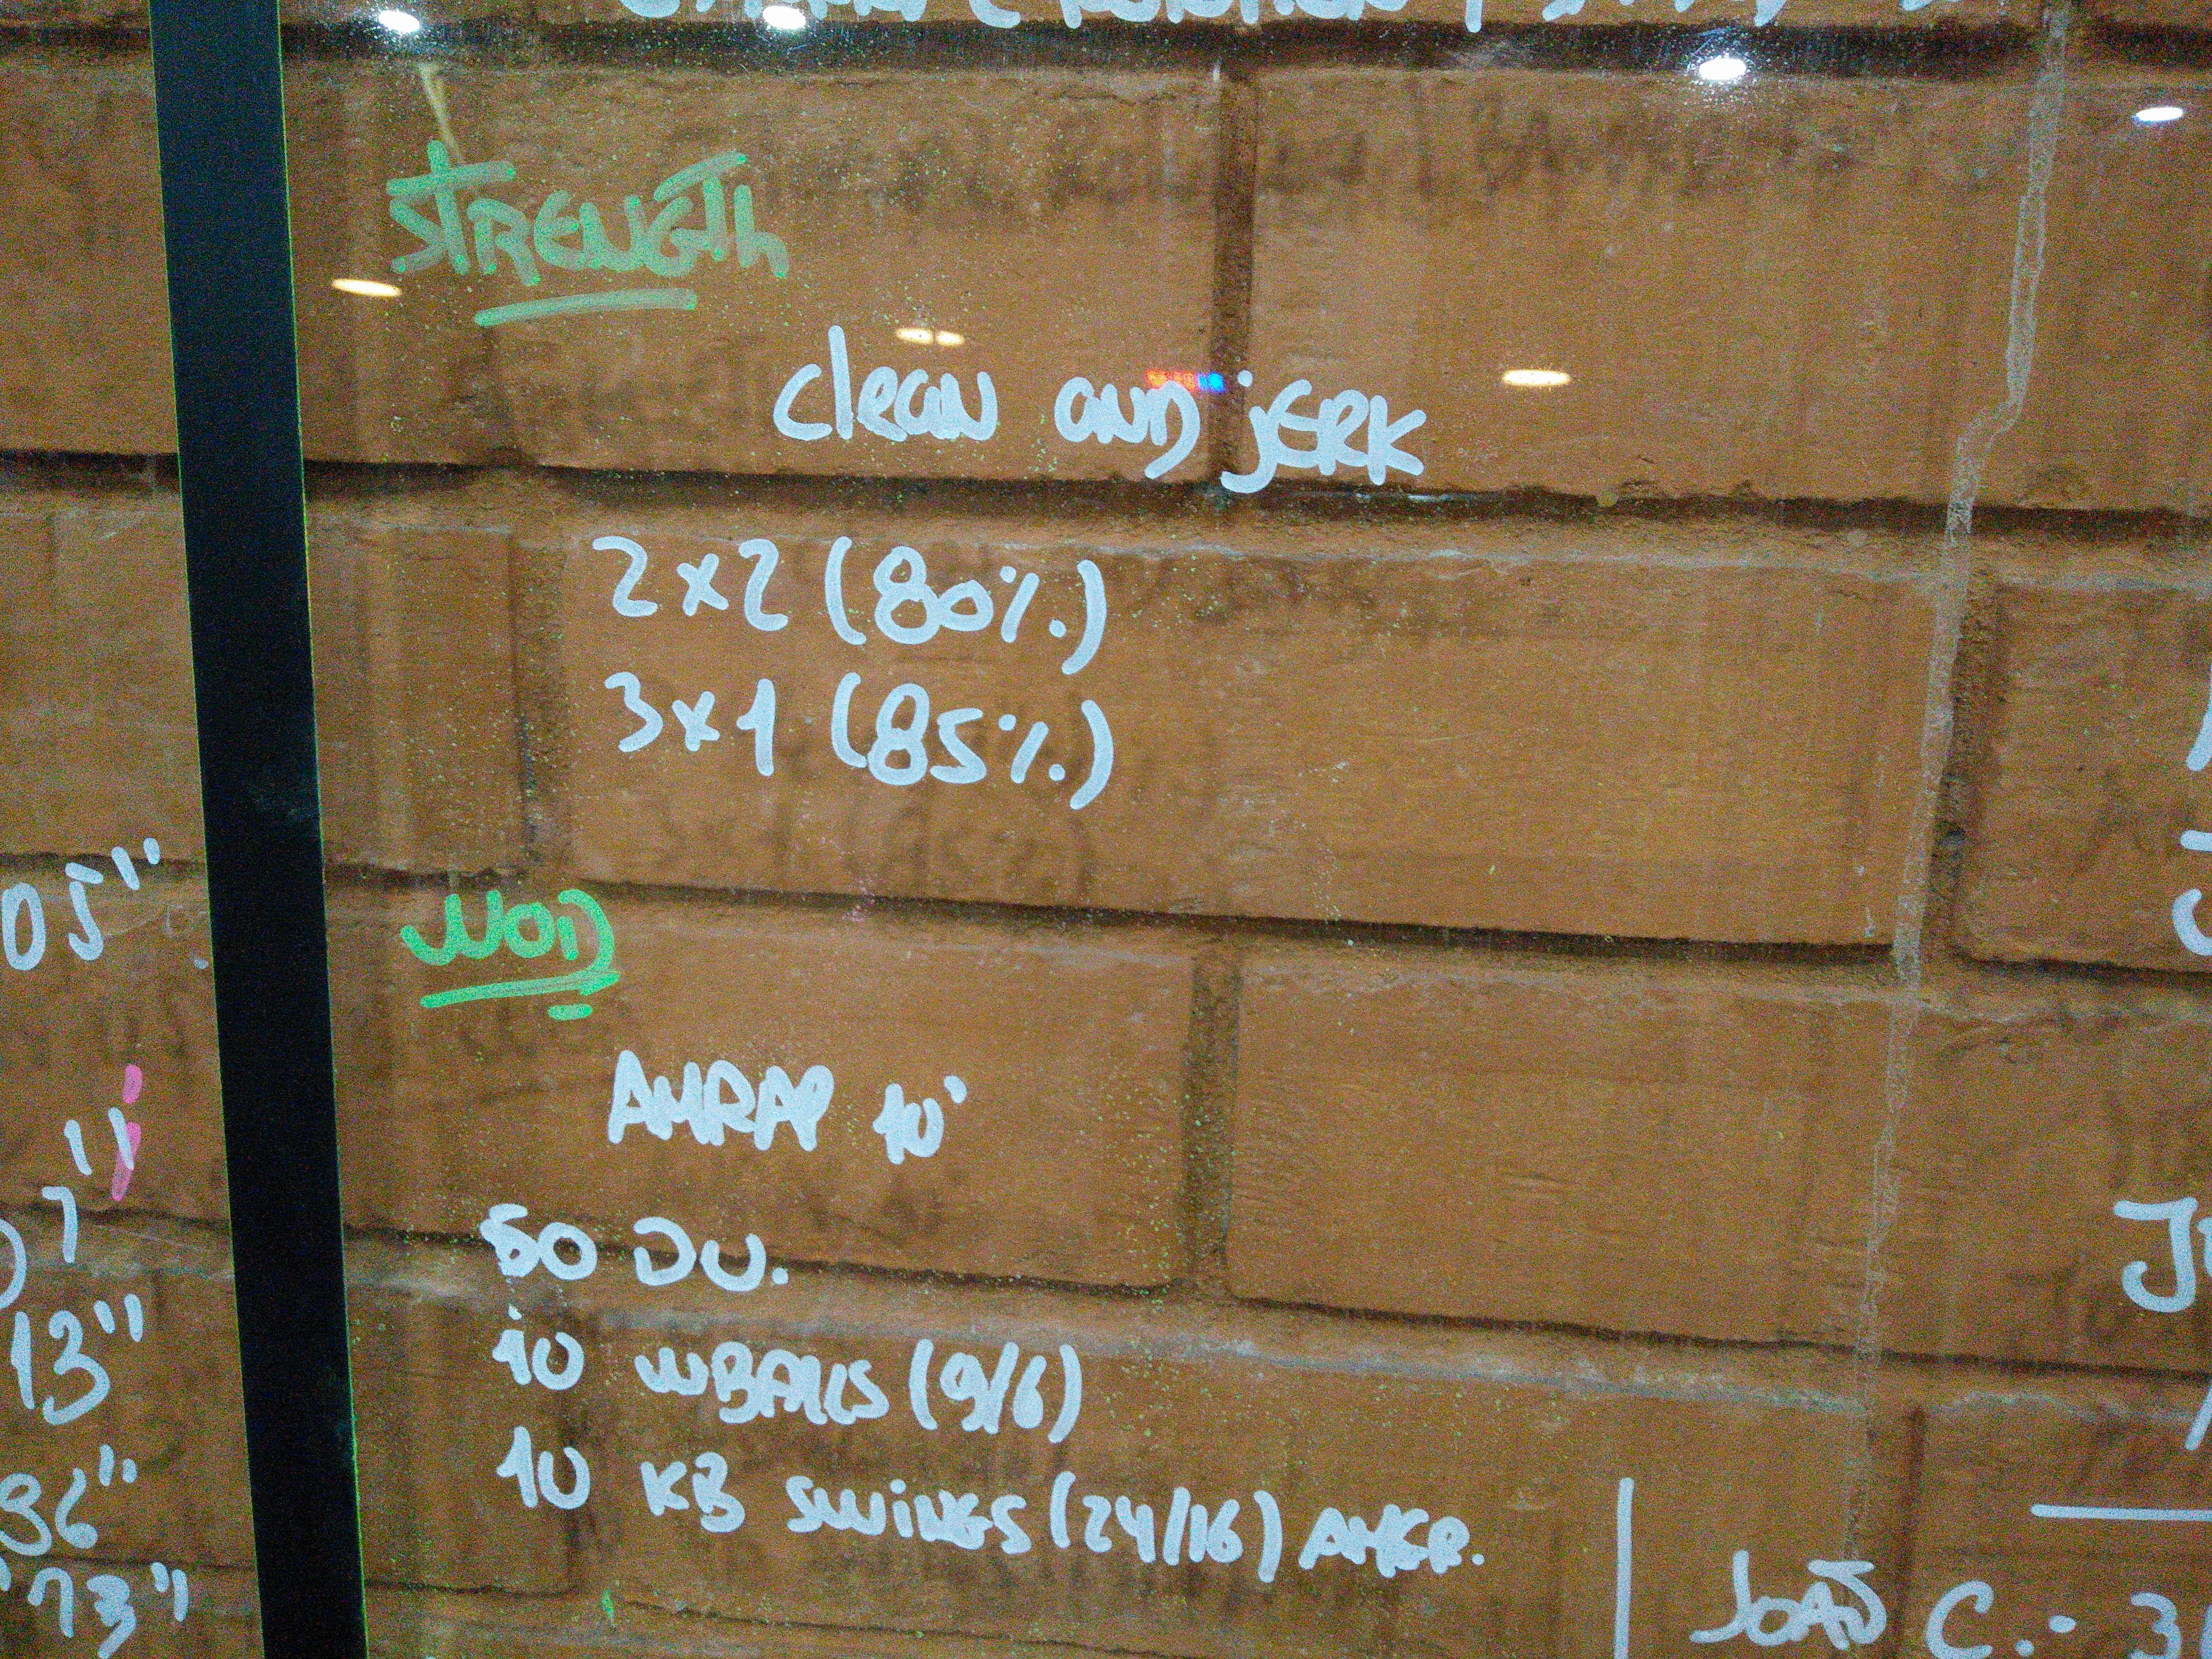 STRENGTH
clean and jERK
2x2 (80%)
3x1 (85%)
WOD
AMRAP 10'
50 DU.
10 WBALLS (9/6)
10 KB SWiNGS (24/16) AMER.
05"
13"
36"
73"
JOÃO C.: 3